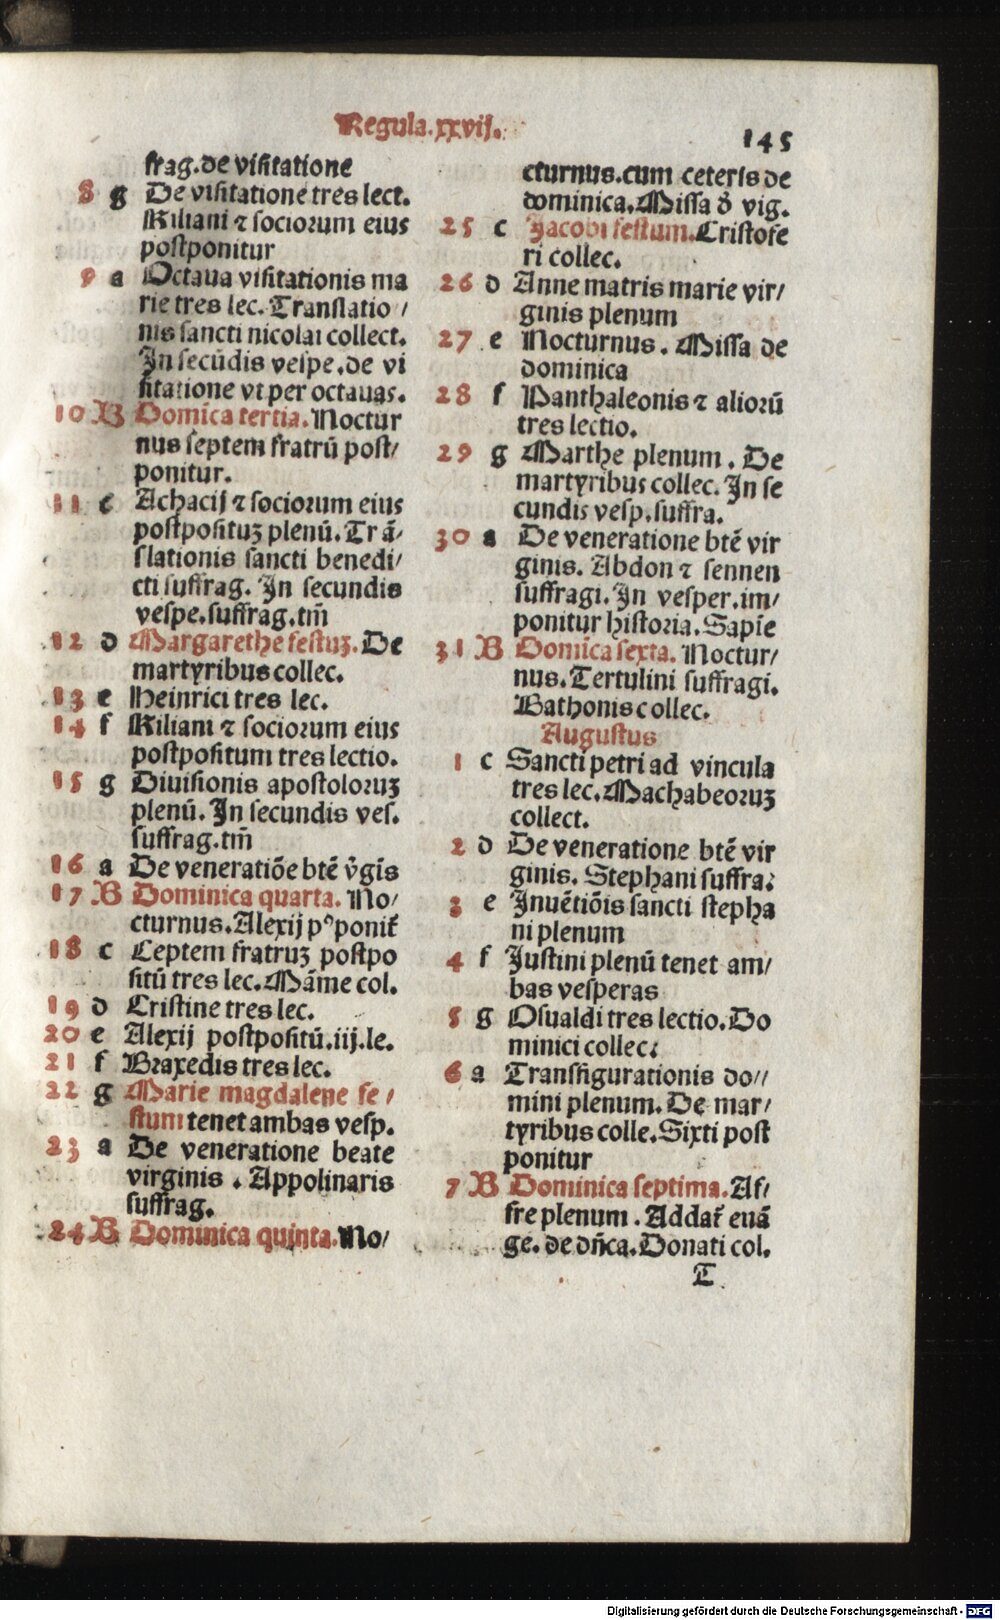 Regula.xxvij.
145
frag.de visitatione
8 g De visitatione tres lect.
Kiliani ⁊ sociorum eius
postponitur
9 a Octaua visitationis ma
rie tres lec. Translatio/
nis sancti nicolai collect.
In secūdis vespe.de vi
sitatione vt per octauas.
10 B Domīca tertia. Noctur
nus septem fratrū post/
ponitur.
11 c Achacij ⁊ sociorum eius
postposituꝫ plenū. Trā/
slationis sancti benedi/
cti suffrag. In secundis
vespe.suffrag.tm̄
12 d Margarethe festuꝫ. De
martyribus collec.
13 e Heinrici tres lec.
14 f Kiliani ⁊ sociorum eius
postpositum tres lectio.
15 g Diuisionis apostoloruꝫ
plenū. In secundis ves.
suffrag.tm̄
16 a De veneratiōe btē v̄gīs
17 B Dominica quarta. No/
cturnus.Alexij pꝰponit᷑
18 c Septem fratruꝫ postpo
sitū tres lec. Māme col.
19 d Cristine tres lec.
20 e Alexij postpositū.iij.le.
21 f Praxedis tres lec.
22 g Marie magdalene fe/
stum tenet ambas vesp.
23 a De veneratione beate
virginis. Appolinaris
suffrag.
24 B Dominica quinta. No/
cturnus.cum ceteris de
dominica. Missa ꝺ̄ vig.
25 c Jacobi festum. Cristofe
ri collec.
26 d Anne matris marie vir/
ginis plenum
27 e Nocturnus. Missa de
dominica
28 f Panthaleonis ⁊ aliorū
tres lectio.
29 g Marthe plenum. De
martyribus collec. In se
cundis vesp.suffra.
30 a De veneratione btē vir
ginis. Abdon ⁊ sennen
suffragi. In vesper.im/
ponitur historia. Sapīe
31 B Domīca sexta. Noctur/
nus. Tertulini suffragi.
Bathonis collec.
Augustus
1 c Sancti petri ad vincula
tres lec. Machabeoruꝫ
collect.
2 d De veneratione btē vir
ginis. Stephani suffra:
3 e Inuētiōis sancti stepha
ni plenum
4 f Justini plenū tenet am/
bas vesperas
5 g Osualdi tres lectio. Do
minici collec:
6 a Transfigurationis do//
mini plenum. De mar/
tyribus colle. Sixti post
ponitur
7 B Dominica septima. Af/
fre plenum. Addat᷑ euā
ge. de dn̄ca. Donati col.
T
Digitalisierung gefördert durch die Deutsche Forschungsgemeinschaft - DFG